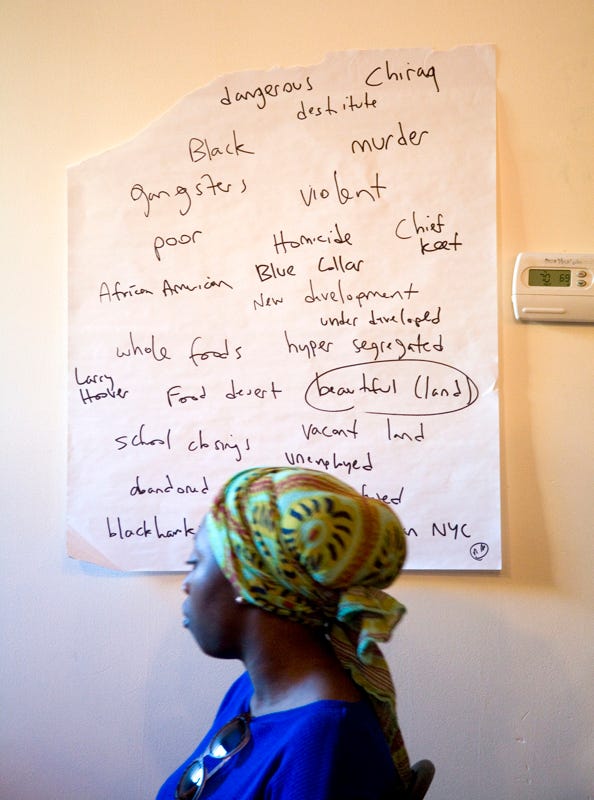 dangerous Chiraq
destitute
Black murder
gangsters violent
poor Homicide Chief Keef
African American Blue Collar
New development
under developed
whole foods hyper segregated
Larry Hoover Food desert beautiful (land)
school closings vacant land
unemployed
abandoned
NYC
70 69